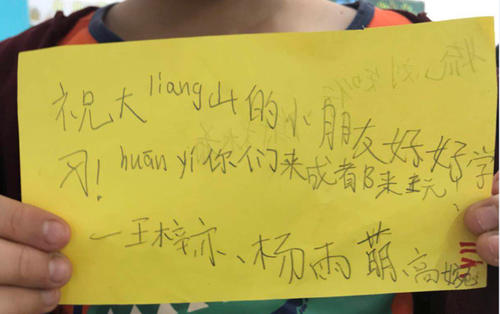 祝大liang山的小朋友好好学
习!huān yí你们来成都来玩!
—王梓亦、杨雨萌、高